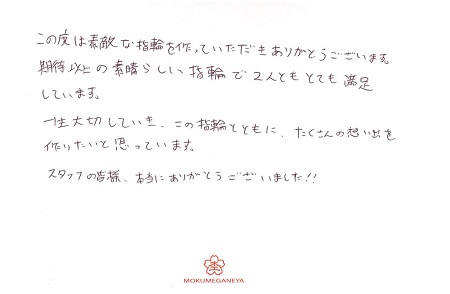 この度は素敵な指輪を作っていただきありがとうございます。
期待以上の素晴らしい指輪で2人ともとても満足
しています。
一生大切していき、この指輪とともに、たくさんの想い出を
作りたいと思っています。
スタッフの皆様、本当にありがとうございました!!
MOKUMEGANEYA